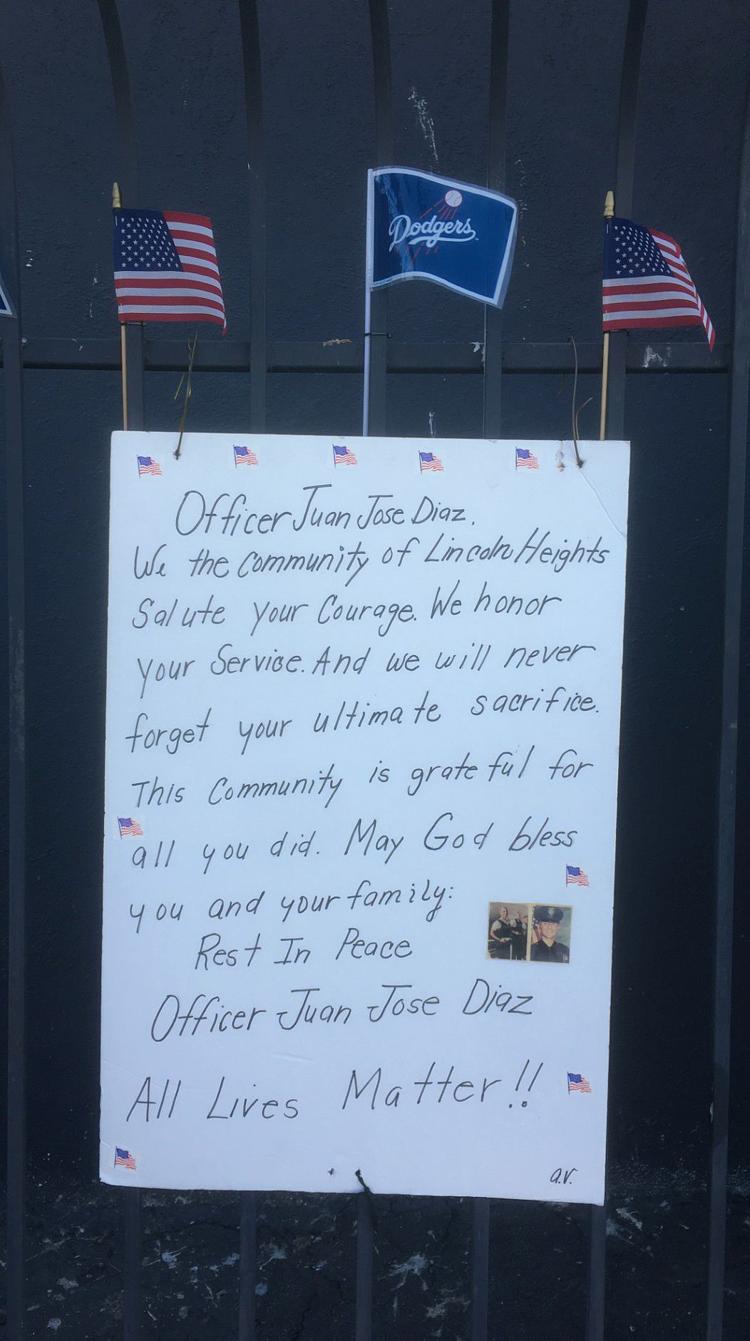 Dodgers
Officer Juan Jose Diaz.
We the Community of Lincoln Heights
Salute your Courage. We honor
your Service. And we will never
forget your ultimate sacrifice.
This Community is grateful for
all you did. May God bless
you and your family:
Rest In Peace
Officer Juan Jose Diaz
All Lives Matter!!
a.v.